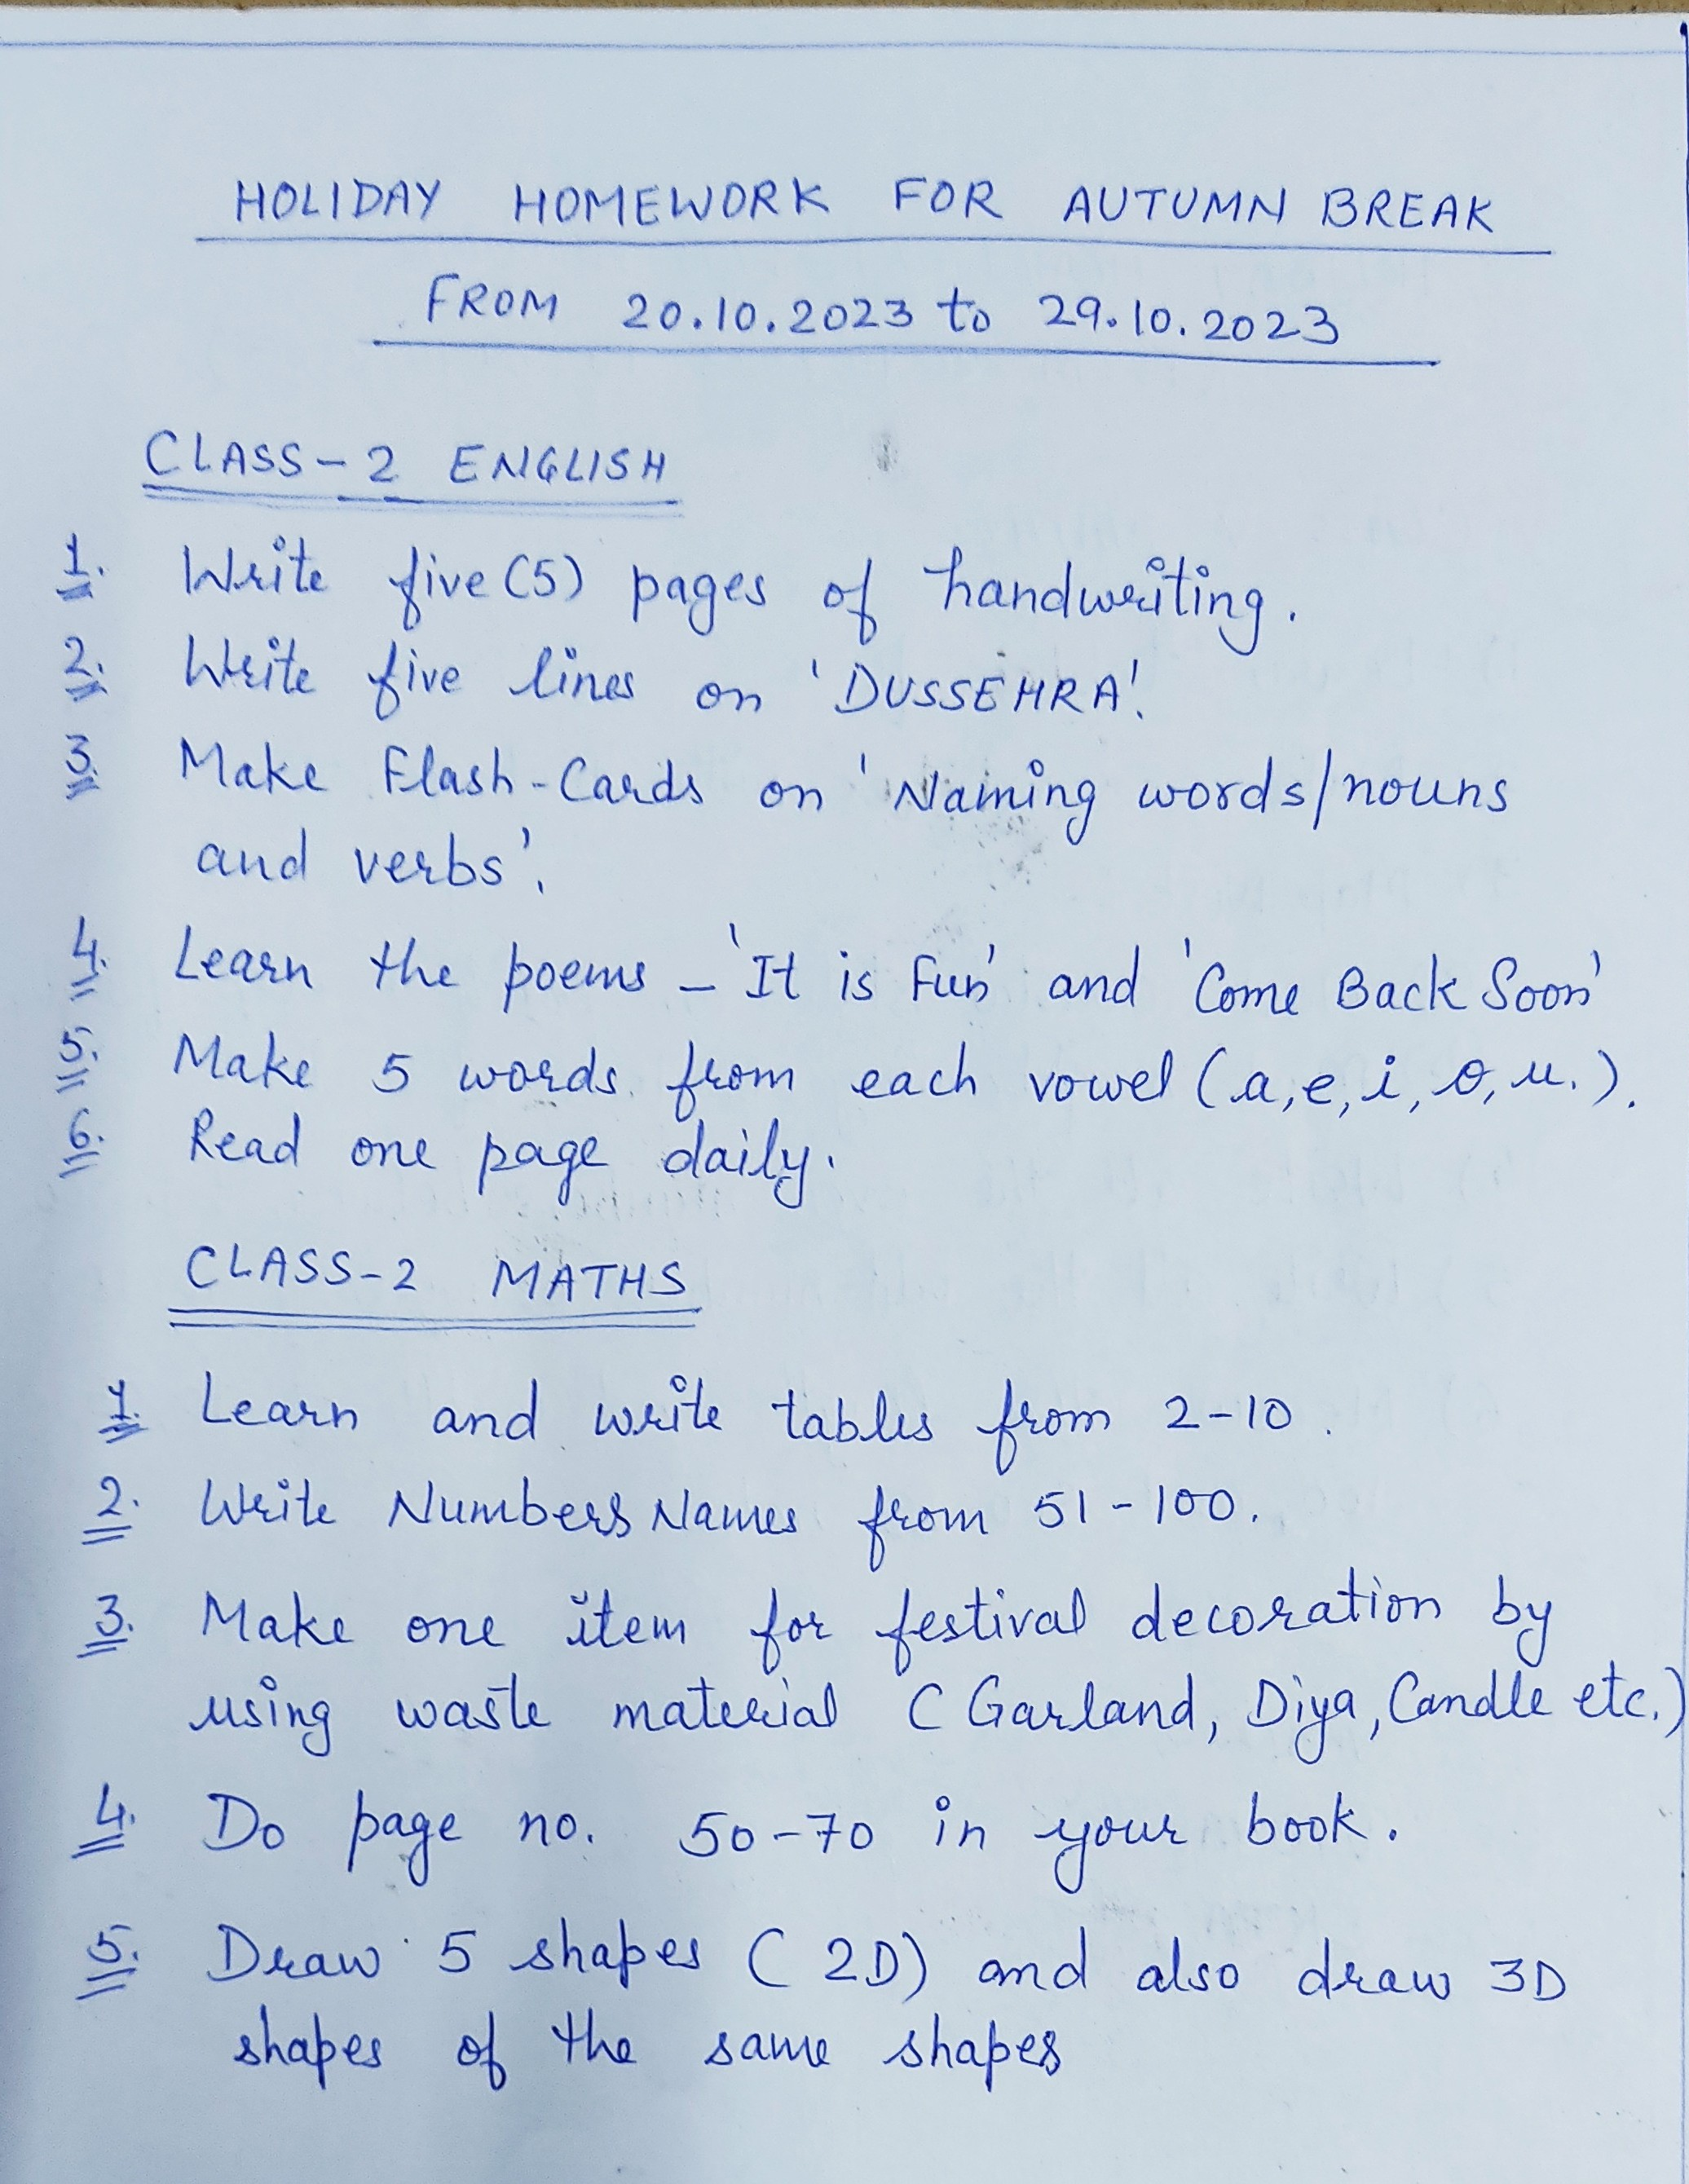 HOLIDAY HOMEWORK FOR AUTUMN BREAK
FROM 20.10.2023 to 29.10.2023
CLASS-2 ENGLISH
1. Write five (5) pages of handwriting.
2. Write five lines on 'DUSSEHRA'.
3. Make Flash-Cards on 'Naming words/nouns
and verbs'.
4. Learn the poems - 'It is Fun' and 'Come Back Soon'
5. Make 5 words from each vowel (a, e, i, o, u.).
6. Read one page daily.
CLASS-2 MATHS
1. Learn and write tables from 2-10.
2. Write Numbers Names from 51-100.
3. Make one item for festival decoration by
using waste material (Garland, Diya, Candle etc.)
4. Do page no. 50-70 in your book.
5. Draw 5 shapes (2D) and also draw 3D
shapes of the same shapes